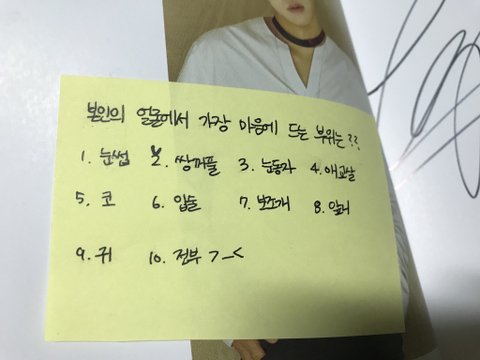 본인의 얼굴에서 가장 마음에 드는 부위는??
1. 눈썹 2. 쌍꺼풀 3. 눈동자 4. 애교살
5. 코 6. 입술 7. 보조개 8. 앞니
9. 귀 10. 전부 >_<